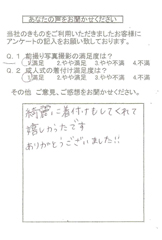 あなたの声をお聞かせください
当社のきものをご利用いただきましたお客様に
アンケートの記入をお願い致しております。
Q.1 前撮り写真撮影の満足度は?
1.満足 2.やや満足 3.やや不満 4.不満
Q.2 成人式の着付け満足度は?
1.満足 2.やや満足 3.やや不満 4.不満
その他 ご意見、ご感想をお聞かせください。
綺麗に着付けもしてくれて
嬉しかったです
ありがとうございました!!